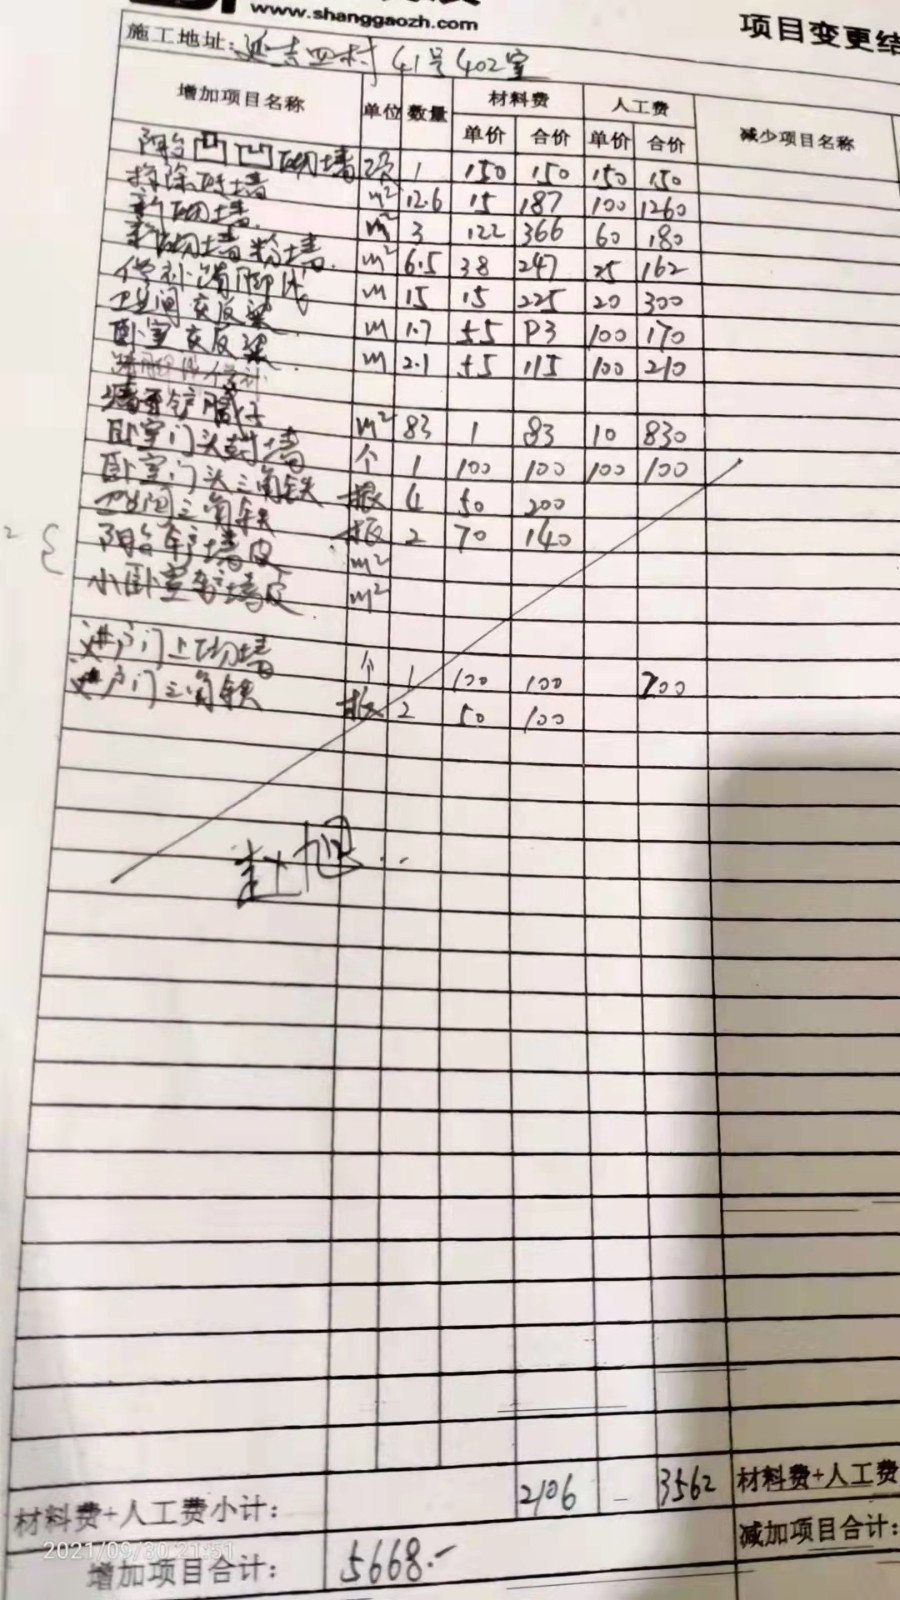 www.shanggaozh.com
项目变更结
施工地址：延吉四村41号402室
增加项目名称 单位 数量 材料费 人工费 减少项目名称
单价 合价 单价 合价
阳台 砌墙 项 1 150 150 150 150
拆除砖墙 m² 12.6 15 187 100 1260
新砌墙 m² 3 122 366 60 180
新砌墙粉墙 m² 6.5 38 247 25 162
修补踢脚线 m 15 15 225 20 300
卫生间 m 1.7 55 93 100 170
卧室 m 2.1 55 115 100 210
墙面铲腻子 m² 83 1 83 10 830
卧室门头封墙 个 1 100 100 100 100
卧室门头三角铁 根 4 50 200
卫生间三角铁 根 2 70 140
阳台铲墙皮 m²
小卧室铲墙皮 m²
进户门上砌墙 个 1 100 100 200
进户门三角铁 根 2 50 100
赵旭
材料费+人工费小计： 2106 3562 材料费+人工费
增加项目合计： 5668.- 减加项目合计：
2021/09/30 21:51